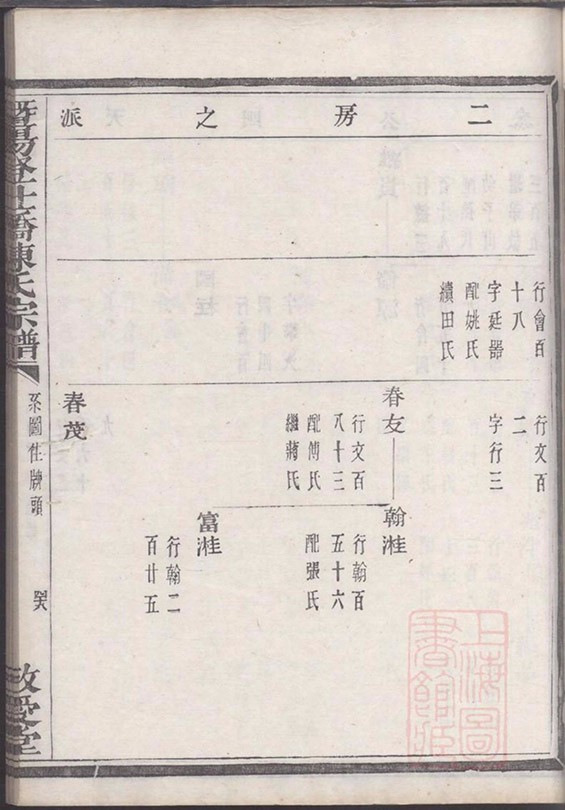 二房之派
行會百
十八
字廷器
配姚氏
續田氏
行文百
二
字行三
春友
行文百
八十三
配傅氏
繼蔣氏
春茂
翰溎
行翰百
五十六
配張氏
富溎
行翰二
百廿五
陳氏宗譜
系圖住牌頭
敬愛堂
上海圖
書館藏